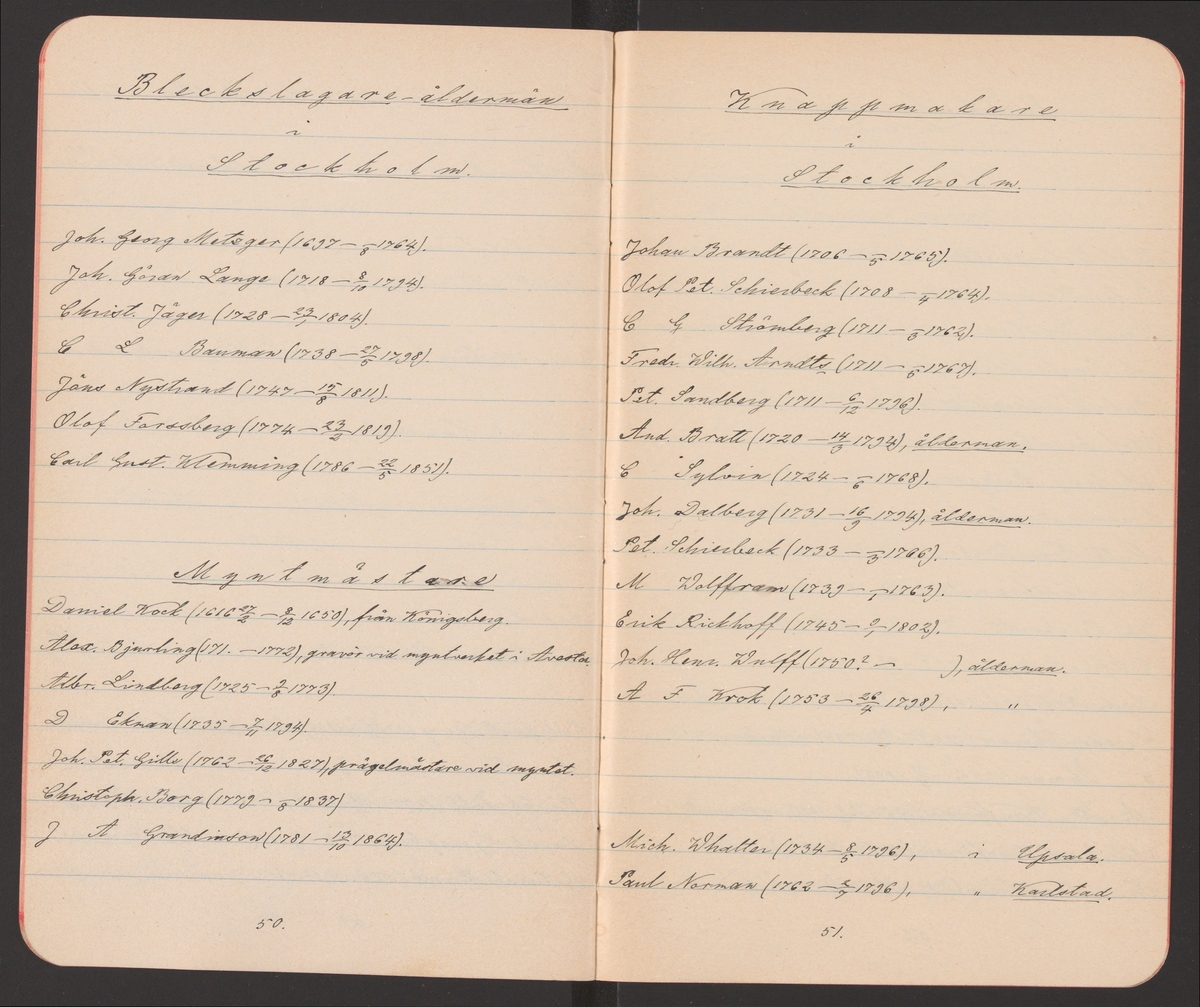 Bleckslagare-åldermän
i
Stockholm.
Joh. Georg Metzger (1697 — –/8 1764).
Joh. Göran Lange (1718 — 8/10 1794).
Christ. Jäger (1728 — 23/1 1804).
C L Bauman (1738 — 27/5 1798).
Jöns Nystrand (1747 — 15/8 1811).
Olof Forssberg (1774 — 23/2 1819).
Carl Gust. Klemming (1786 — 22/5 1851).
Myntmästare
Daniel Kock (1616 27/2 — 9/12 1650), från Königsberg.
Alex. Bjurling (171. — 1772), gravör vid myntverket i Avesta.
Albr. Lindberg (1725 — 2/8 1773)
D Ekman (1735 — 7/11 1794).
Joh. Pet. Gille (1762 — 26/12 1827), prägelmästare vid myntet.
Christoph. Borg (1779 — –/8 1837)
J A Grandinson (1781 — 13/10 1864).
50.
Knappmakare
i
Stockholm.
Johan Brandt (1706 — –/5 1765).
Olof Pet. Schierbeck (1708 — –/4 1764).
C G Strömberg (1711 — –/3 1762).
Fredr. Wilh. Arndts (1711 — –/5 1767).
Pet. Sandberg (1711 — 6/12 1796).
And. Bratt (1720 — 14/3 1794), ålderman.
C Sylvin (1724 — –/6 1768).
Joh. Dalberg (1731 — 16/9 1794), ålderman.
Pet. Schierbeck (1733 — –/3 1766).
M Wolffram (1739 — –/1 1763).
Erik Rickhoff (1745 — 9/1 1802).
Joh. Henr. Wulff (1750? — ), ålderman.
A F Krok (1753 — 26/4 1798), "
Mich. Whalter (1734 — 8/5 1796), i Upsala.
Paul Norman (1762 — 2/7 1796), " Karlstad.
51.